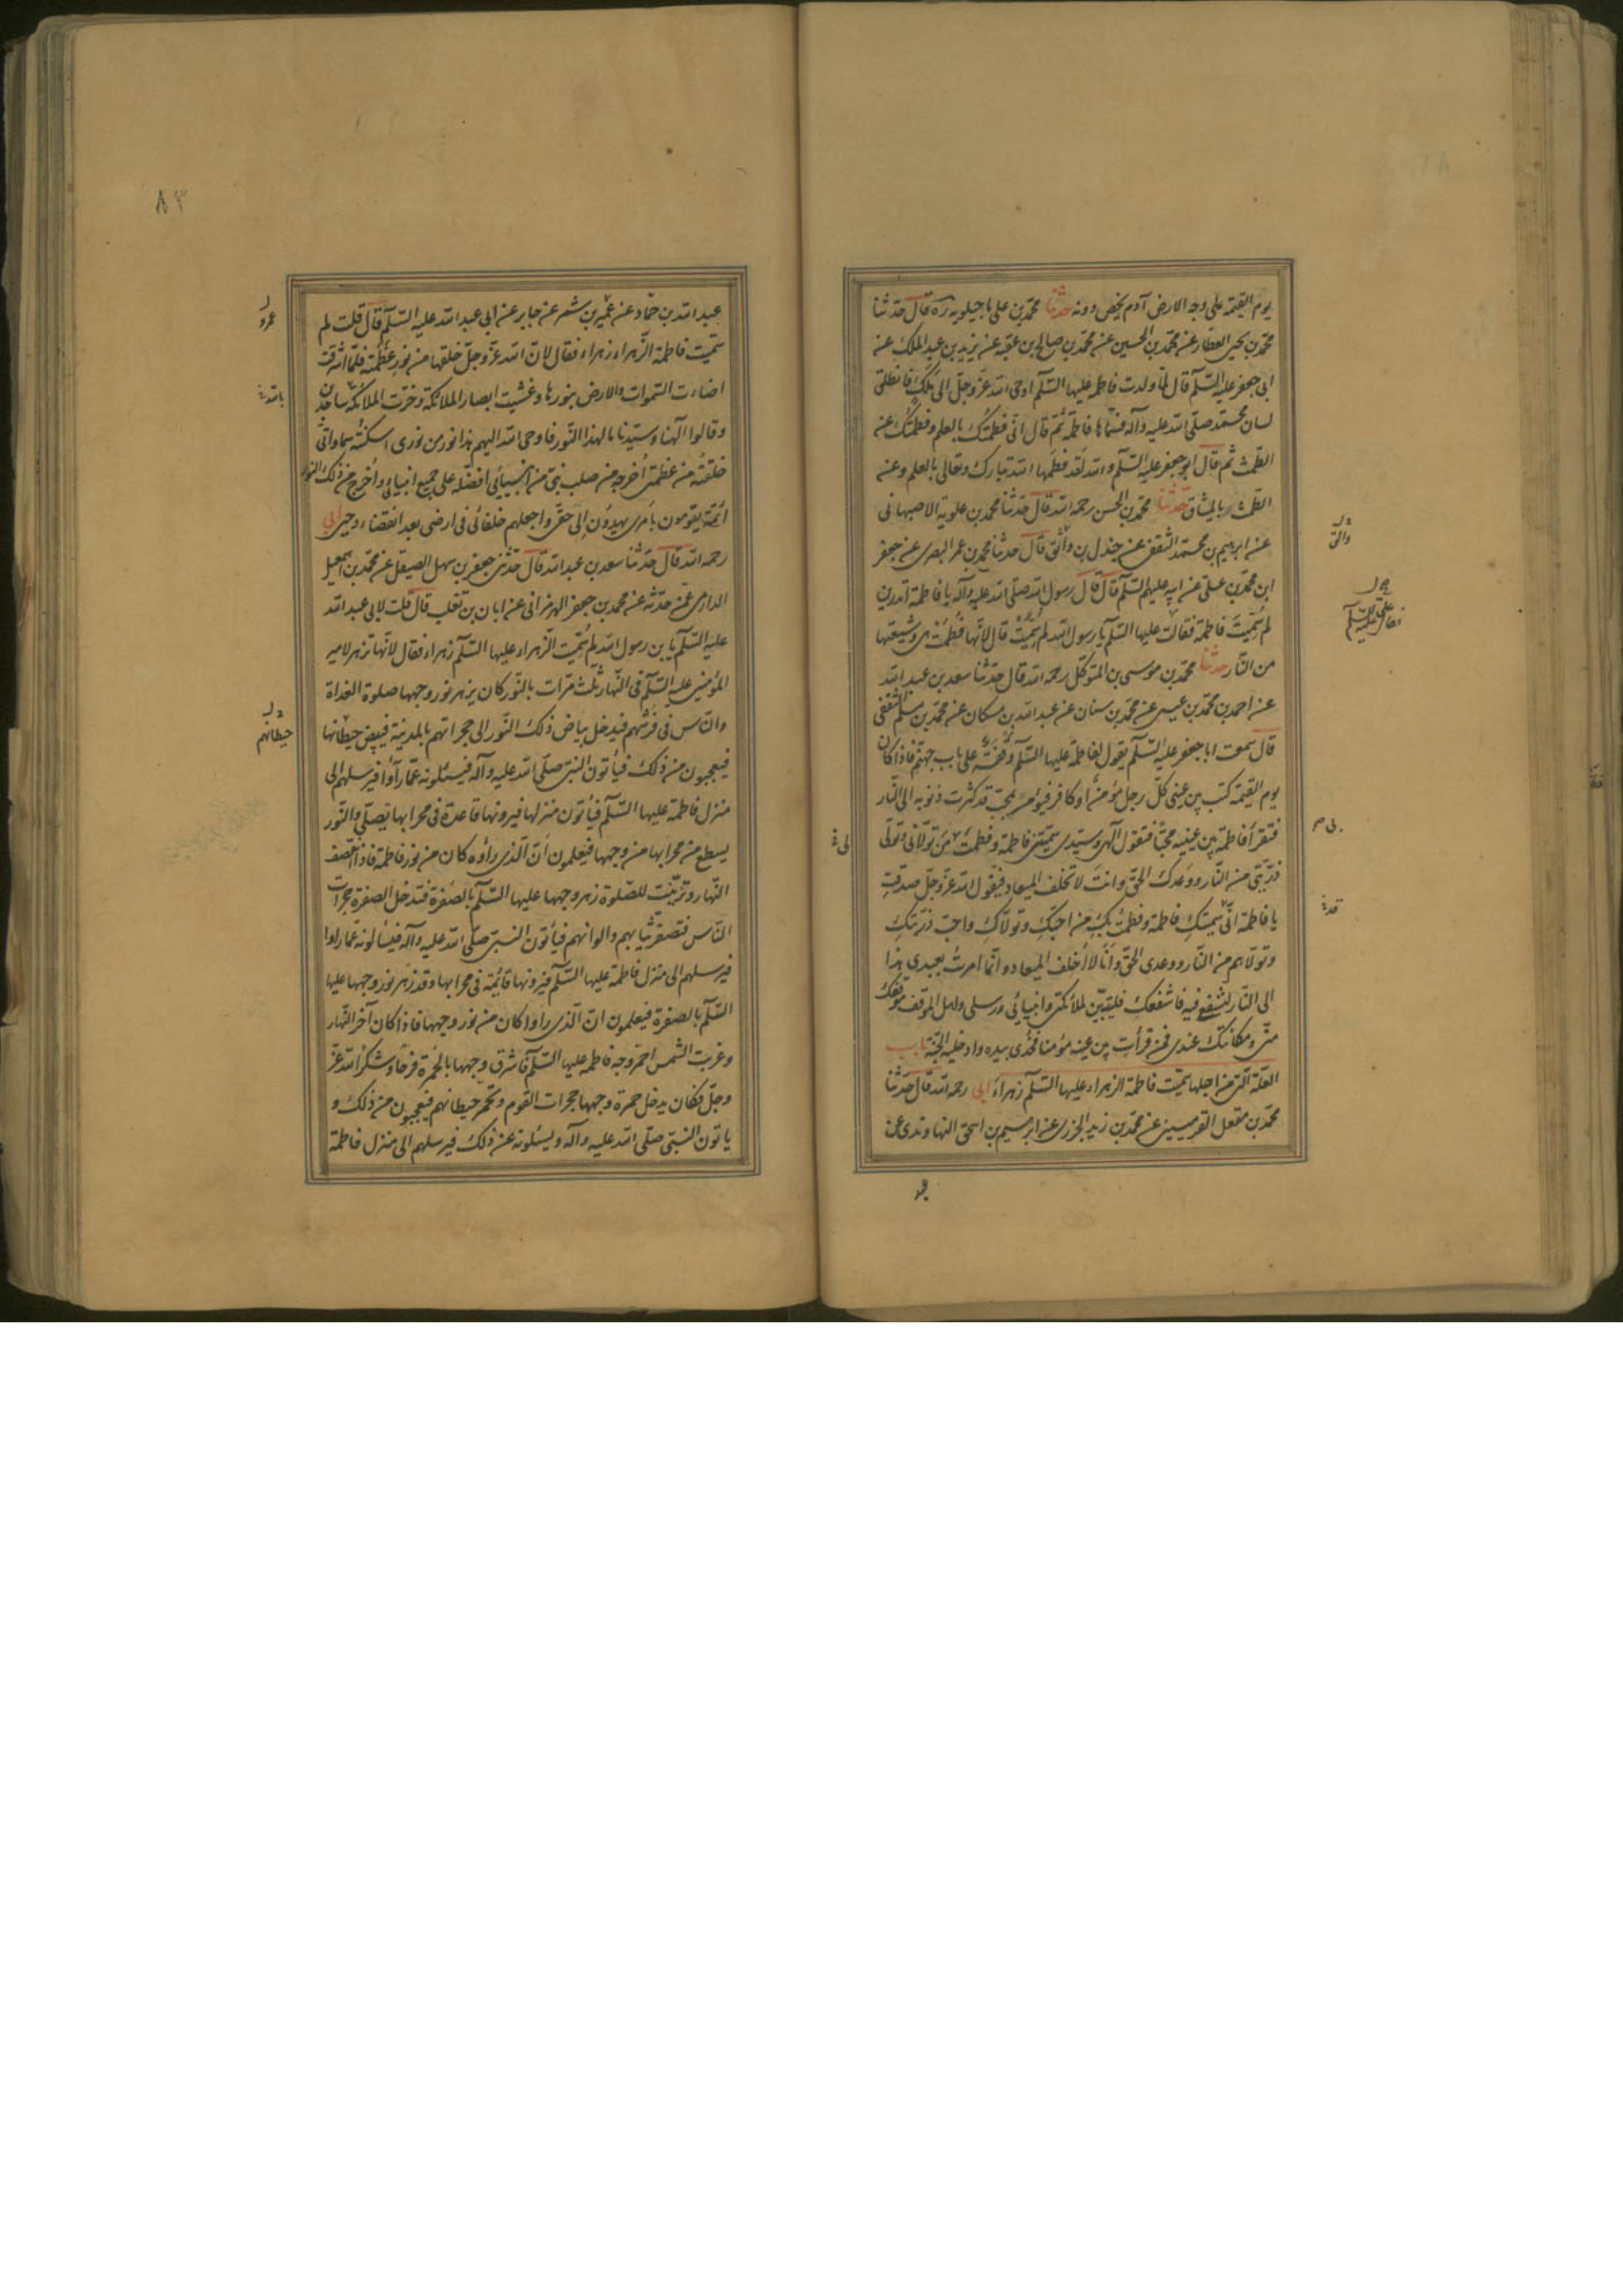 يوم القيمة على وجه الارض آدم يخص دونه حدثنا محمد بن علي ماجيلويه ره قال حدثنا
محمد بن يحيى العطار عن محمد بن الحسين عن محمد بن صالح بن عقبة عن يزيد بن عبد الملك عن
ابي جعفر عليه السلام قال لما ولدت فاطمة عليها السلام اوحى الله عز وجل الى ملك فانطلق
لسان محمد صلى الله عليه وآله فسماها فاطمة ثم قال اني فطمتك بالعلم وفطمتك عن
الطمث ثم قال ابو جعفر عليه السلام والله لقد فطمها الله تبارك وتعالى بالعلم وعن
الطمث بالميثاق حدثنا محمد بن الحسن رحمه الله قال حدثنا محمد بن علويه الاصبهاني
عن ابرهيم بن محمد الثقفي عن جندل بن واثق قال حدثنا محمد بن عمر البصرى عن جعفر
ابن محمد بن علي عن ابيه عليهم السلام قال قال رسول الله صلى الله عليه وآله يا فاطمة اتدرين
لم سميت فاطمة فقالت عليها السلام يا رسول الله لم سميت قال لانها فطمت هى وشيعتها
من النار حدثنا محمد بن موسى بن المتوكل رحمه الله قال حدثنا سعد بن عبد الله
عن احمد بن محمد بن عيسى عن محمد بن سنان عن عبد الله بن مسكان عن محمد بن مسلم الثقفي
قال سمعت ابا جعفر عليه السلام يقول لفاطمة عليها السلام وقفة على باب جهنم فاذا كان
يوم القيمة كتب بين عيني كل رجل مؤمن او كافر فيؤمر بمحب قد كثرت ذنوبه الى النار
فتقرأ فاطمة بين عينيه محبا فتقول الهى وسيدى سميتني فاطمة وفطمت بى من تولاني وتولى
ذريتي من النار ووعدك الحق وانت لا تخلف الميعاد فيقول الله عز وجل صدقت
يا فاطمة اني سميتك فاطمة وفطمت بك من احبك وتولاك واحب ذريتك
وتولاهم من النار ووعدى الحق وانا لا اخلف الميعاد وانما امرت بعبدى هذا
الى النار لتشفعى فيه فاشفعك فليتبين لملائكتى وانبيائى ورسلى واهل الموقف موقفك
منى ومكانتك عندى فمن قرأت بين عينيه مؤمنا فخذى بيده وادخليه الجنة باب
العلة التي من اجلها سميت فاطمة الزهراء عليها السلام زهراء ابى رحمه الله قال حدثنا
محمد بن معقل القرميسينى عن محمد بن زيد الجزرى عن ابرهيم بن اسحق النهاوندى عن
والق
فقال على عليه السلام
عبد الله بن حماد عن عمير بن شمر عن جابر عن ابى عبد الله عليه السلام قال قلت لم
سميت فاطمة الزهراء زهراء فقال لان الله عز وجل خلقها من نور عظمته فلما اشرقت
اضاءت السموات والارض بنورها وغشيت ابصار الملائكة وخرت الملائكة ساجدين
وقالوا الهنا وسيدنا ما لهذا النور فاوحى الله اليهم هذا نور من نورى اسكنته سماواتى
خلقته من عظمتى اخرجه من صلب نبى من انبيائى افضله على جميع انبيائى واخرج من ذلك النور
ائمة يقومون بامرى يهدون الى حقى واجعلهم خلفائى فى ارضى بعد انقضاء وحيى ابى
رحمه الله قال حدثنا سعد بن عبد الله قال حدثنى جعفر بن سهل الصيقل عن محمد بن اسمعيل
الدارمى عمن حدثه عن محمد بن جعفر الهرمزانى عن ابان بن تغلب قال قلت لابى عبد الله
عليه السلام يا بن رسول الله لم سميت الزهراء عليها السلام زهراء فقال لانها تزهر لامير
المؤمنين عليه السلام فى النهار ثلث مرات بالنور كان يزهر نور وجهها صلوة الغداة
والناس فى فرشهم فيدخل بياض ذلك النور الى حجراتهم بالمدينة فيبيض حيطانها
فيعجبون من ذلك فيأتون النبى صلى الله عليه وآله فيسئلونه عما رأوا فيرسلهم الى
منزل فاطمة عليها السلام فيأتون منزلها فيرونها قاعدة فى محرابها تصلى والنور
يسطع من محرابها من وجهها فيعلمون ان الذى رأوه كان من نور فاطمة فاذا انتصف
النهار وترتبت للصلوة زهر وجهها عليها السلام بالصفرة فتدخل الصفرة حجرات
الناس فتصفر ثيابهم والوانهم فيأتون النبى صلى الله عليه وآله فيسألونه عما راوا
فيرسلهم الى منزل فاطمة عليها السلام فيرونها قائمة فى محرابها وقد زهر نور وجهها عليها
السلام بالصفرة فيعلمون ان الذى راوا كان من نور وجهها فاذا كان آخر النهار
وغربت الشمس احمر وجه فاطمة عليها السلام فاشرق وجهها بالحمرة فرحا وشكرا لله عز
وجل فكان يدخل حمرة وجهها حجرات القوم وتحمر حيطانهم فيعجبون من ذلك و
ياتون النبى صلى الله عليه وآله ويسئلونه عن ذلك فيرسلهم الى منزل فاطمة
عمرو
حيطانهم
٨٣